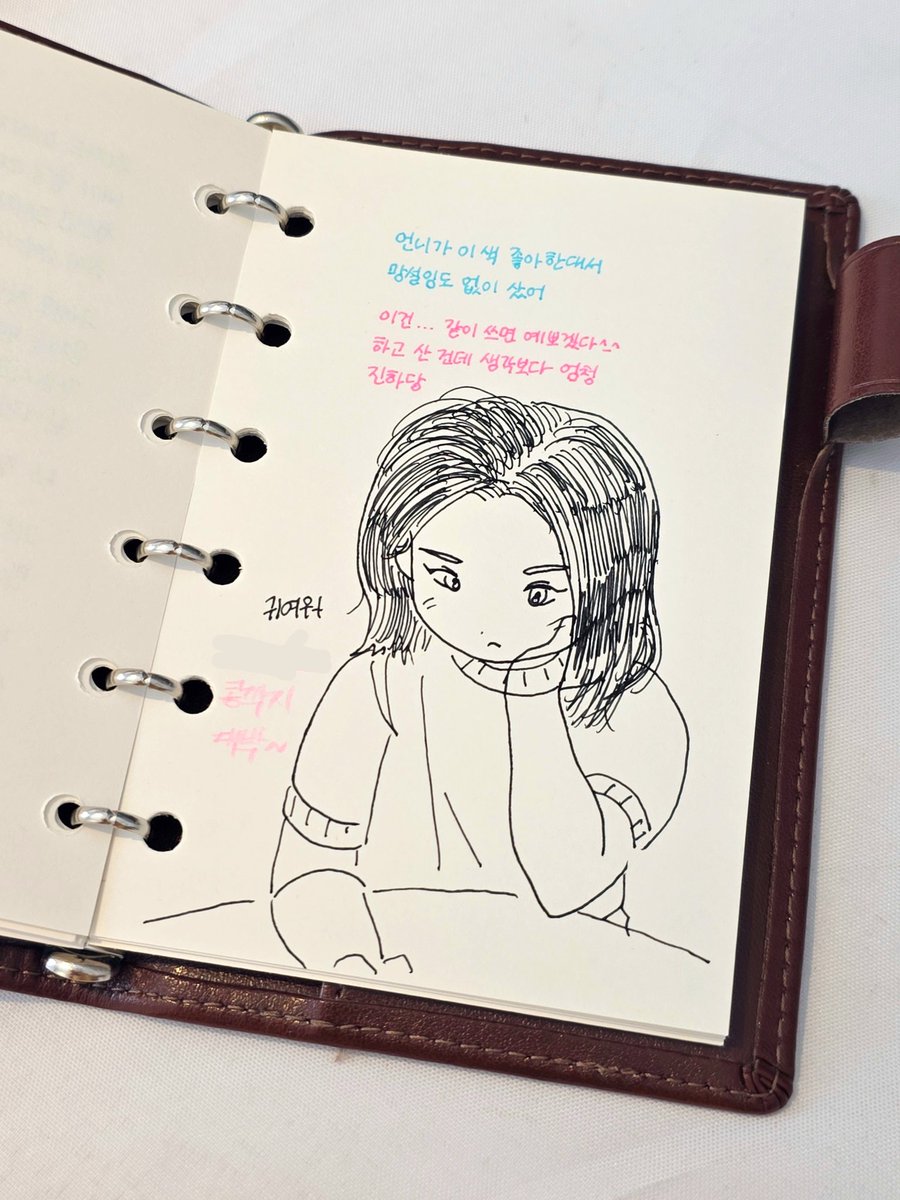 언니가 이 색 좋아한대서
망설임도 없이 샀어
이건... 같이 쓰면 예쁘겠다^^
하고 산 건데 생각보다 엄청
진하당
귀여워
대박~